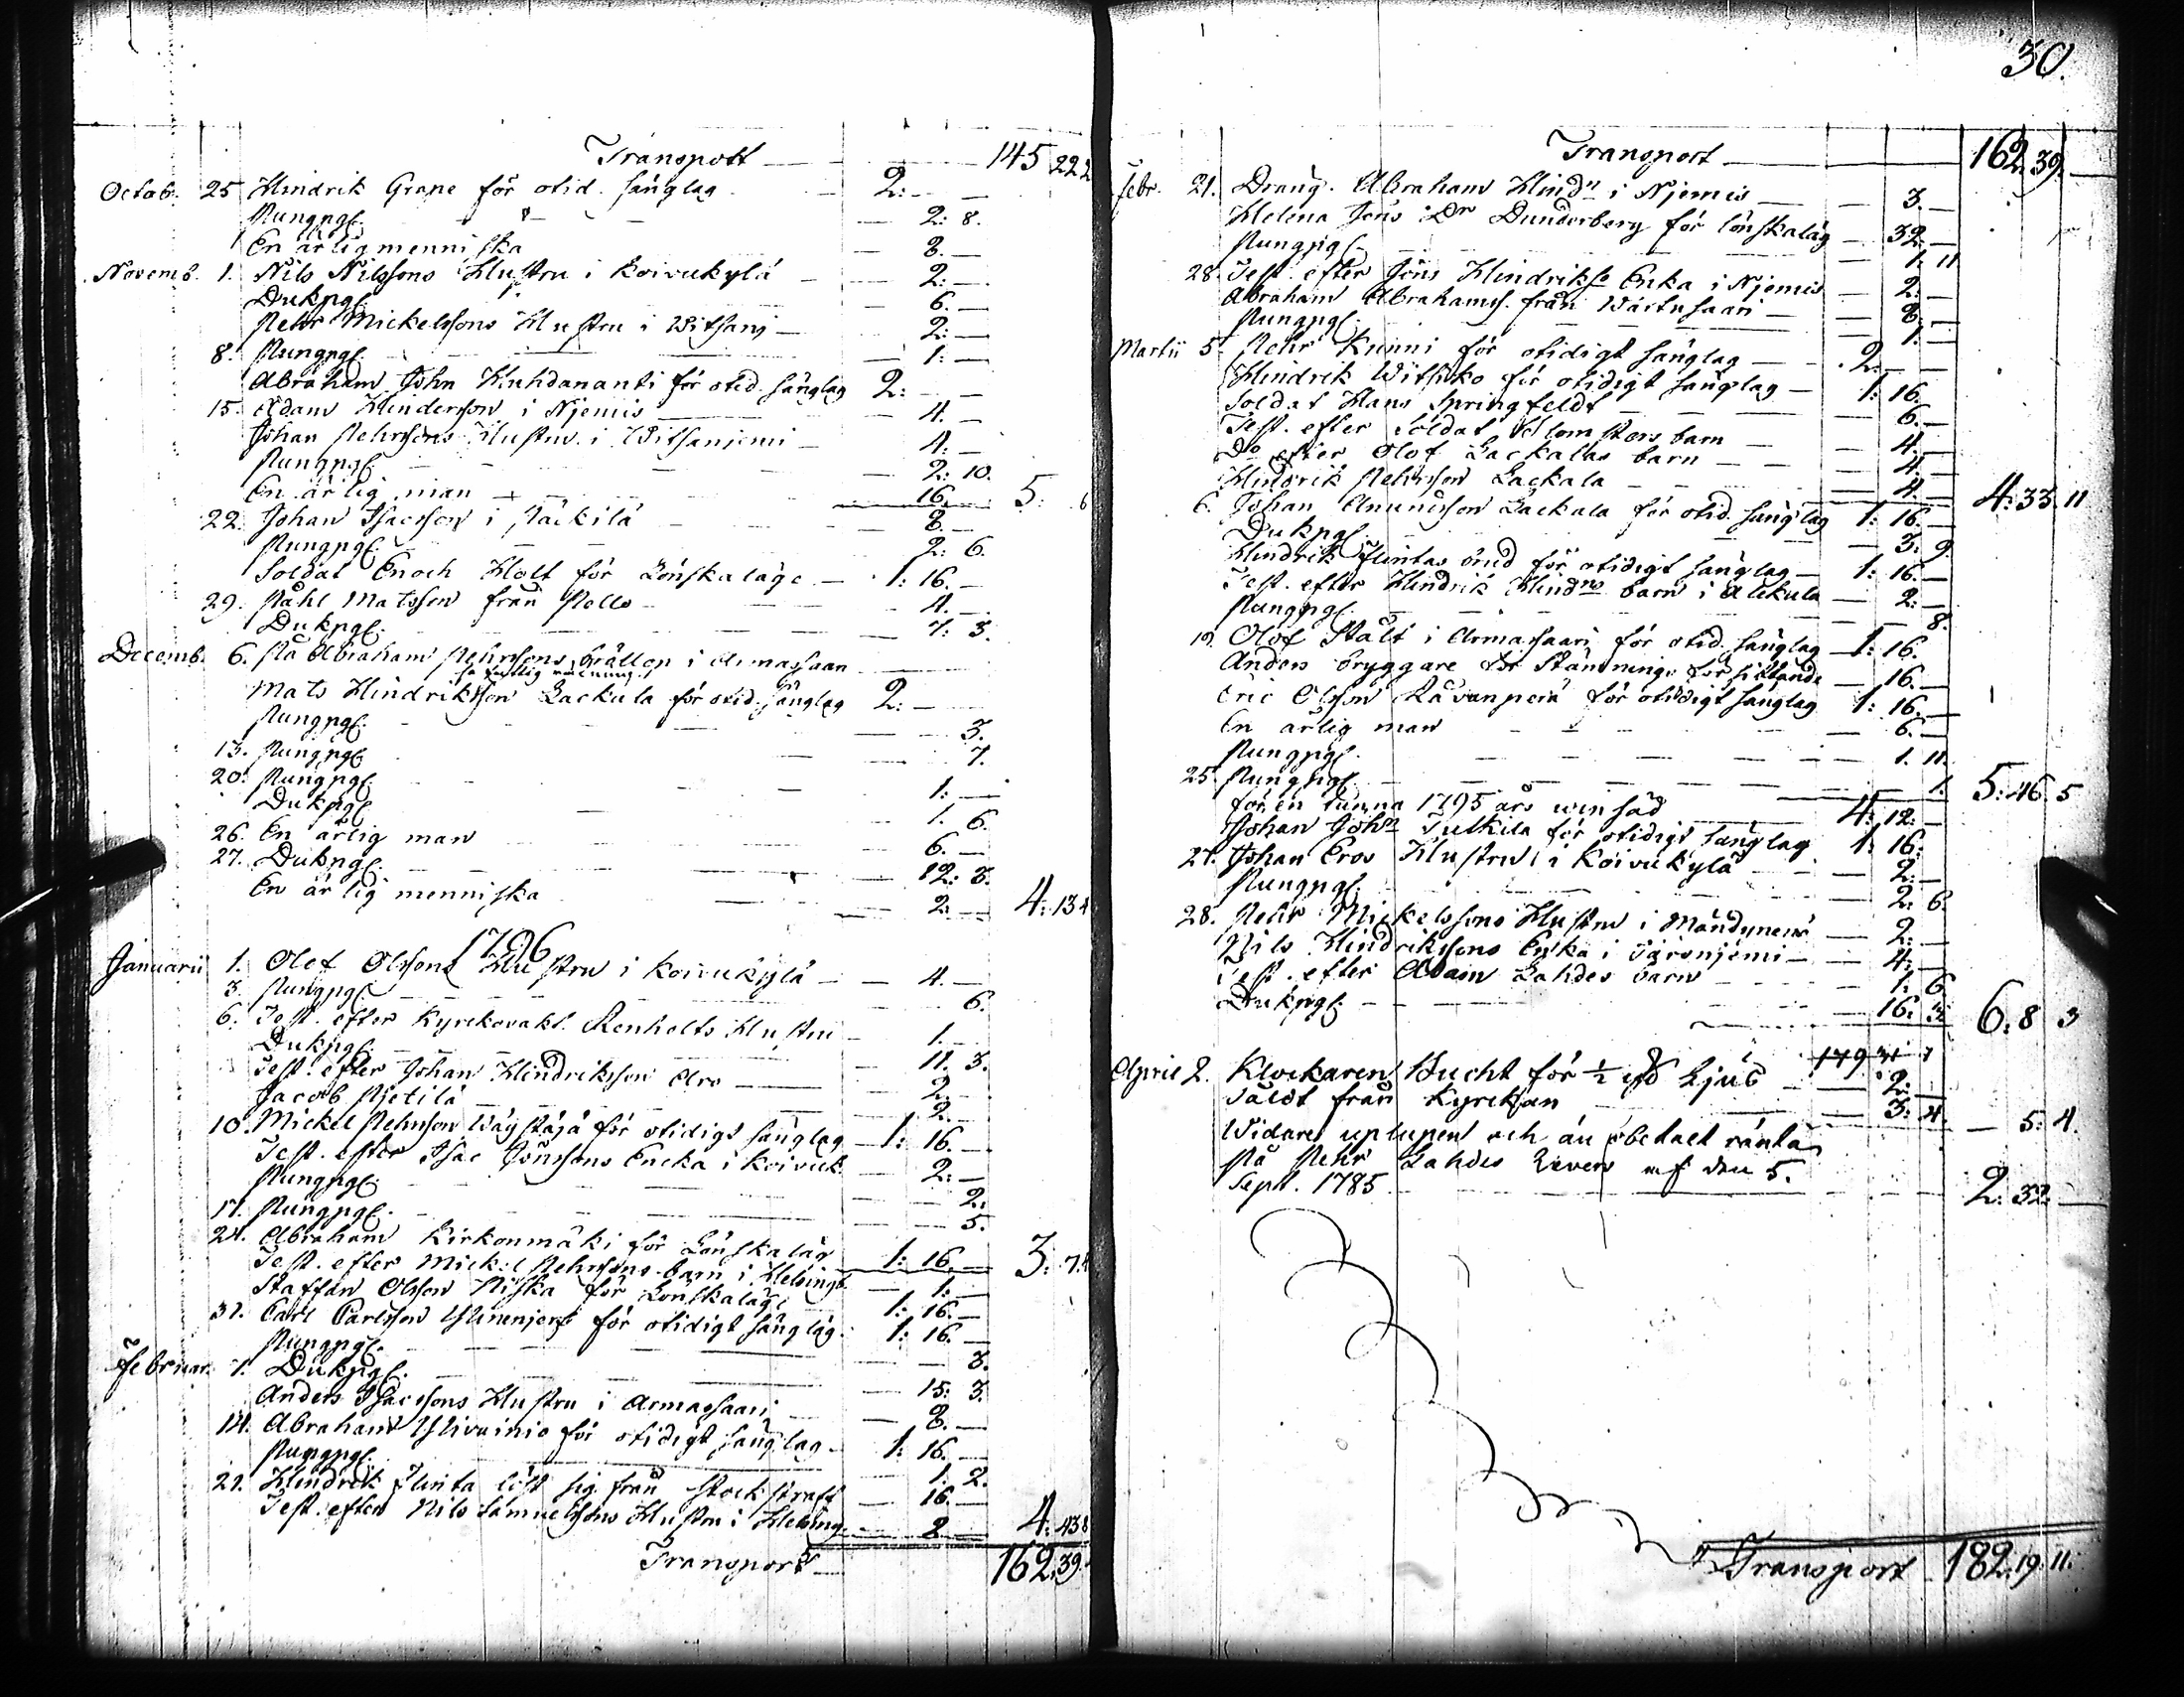 Transport — 145 22 2
Octob. 25 Hindrik Grape för otid. sänglag — 2: —
Pungpgr. — 2: 8.
En ärlig menniska — 8. —
Novemb. 1. Nils Nilssons Hustru i Koivukylä — 2: —
Dukpgr. — 6. —
Pehr Mickelssons Hustru i Witsanj — 2: —
8. Pungpgr. — 1: —
Abraham John Huhdananti för otid. sänglag 2: —
15. Adam Hindersson i Njemis — 4. —
Johan Pehrssons Hustru i Witsanjemi — 4: —
Pungpgr. — 2: 10.
En ärlig man — 16. — 5: 6
22. Johan Isacsson i Päckilä — 8. —
Pungpgr. — 2: 6.
Soldat Enoch Holt för Lönskaläge — 1: 16. —
29. Påhl Matsson från Pello — 4. —
Dukpgr. — 7: 3.
Decemb. 6. På Abraham Pehrssons bröllop i Armassaari
Mats Hindriksson Lackula för otid. sänglag 2: —
Pungpgr. — 3.
13. Pungpgr. — 7.
20. Pungpgr. — 1: —
Dukpgr. — 1. 6.
26. En ärlig man — 6. —
27. Dukpgr. — 12: 3.
En ärlig menniska — 2: — 4: 13 4
1796
Januarii 1. Olof Olssons Hustru i Koivukylä — 4. —
3. Pungpgr. — 6.
6. Test. efter Kyrkovakt. Renholts Hustru — 1. —
Dukpgr. — 11. 3.
Test. efter Johan Hindriksson Aro — 2. —
Jacob Pjetilä — 2. —
10. Mickel Pehrsson Wäystäjä för otidigt sänglag — 1: 16. —
Test. efter Isac Jönssons Encka i Koivuk. — 2: —
Pungpgr. — 2.
17. Pungpgr. — 5.
24. Abraham Kirkonmäki för Lönskaläg — 1: 16. — 3: 7.4
Test. efter Mickel Pehrssons barn i Helsingb. — 1: —
Staffan Olsson Niska för Lönskaläge 1: 16. —
31. Carl Carlsson för otidigt sänglag. 1: 16. —
Pungpgr. — 3.
Februar. 7. Dukpgr. — 15: 3.
Anders Isacssons Hustru i Armassaari — 8. —
14. Abraham Ylivainio för otidigt sänglag — 1: 16. —
Pungpgr. — 1. 2.
21. Hindrik Flinta löst sig från stockstraff — 16. —
Test. efter Nils Samuelssons Hustru i Helsing. — 8 — 4: 43 8
Transport — 162. 39.
30.
Transport — 162. 39. —
Febr. 21. Dräng. Abraham Hindn i Njemis — 3. —
Helena Jöns Dr Dunderberg för lönskaläg — 32. —
Pungpgr. — 1. 11
28. Test. efter Jöns Hindrikss. Enka i Njemis — 2: —
Abraham Abrahamss. från Wärtusaari — 8. —
Pungpgr. — 1. —
Martii 5. Pehr Kunni för otidigt sänglag — 2. —
Hindrik Witsiko för otidigt sänglag — 1: 16.
Soldat Hans Springfeldt — 6. —
Test. efter Soldat Blomsters barn — 4. —
Do efter Olof Lackalas barn — 4. —
Hindrik Pehrsson Lackala — 4. — 4: 33. 11
6. Johan Amundsson Lackala för otid. sänglag 1: 16. —
Dukpgr. — 3: 9.
Hindrik Flintas brud för otidigt sänglag — 1: 16. —
Test. efter Hindrik Hindns barn i Alckula — 2: —
Pungpgr. — 8.
Olof Stålt i Armassaari för otid. sänglag — 1: 16.
Anders Bryggare för Stämnings försittande — 16. —
Eric Olsson Råvanperä för otidigt sänglag 1: 16. —
En ärlig man — 6. —
Pungpgr. — 1. 11.
25. Pungpgr. — 1. 5: 46. 5
för en tunna 1795 års winsäd — 4: 12: —
Johan Johns Tulkila för otidigt sänglag 1: 16:
27. Johan Eros Hustru i Koivukylä — 2: —
Pungpgr. — 2. 6.
28. Pehr Mickelssons Hustru i — 2: —
Nils Hindrikssons Enka i Törönjemi — 4: —
Test. efter Adam Lahdes barn — 1: 6
Dukpgr. — 16. 3. 6: 8 3
April 2. Klockaren Hucht för ½ ℔ Ljus — 2: —
Såldt från Kyrckan — 3: 4. — 5: 4.
Widare uplupen och än obetalt ränta
På Pehr Lahdes Revers af den 5.
Sept. 1785 — 2: 32: —
Transport 182. 19. 11.